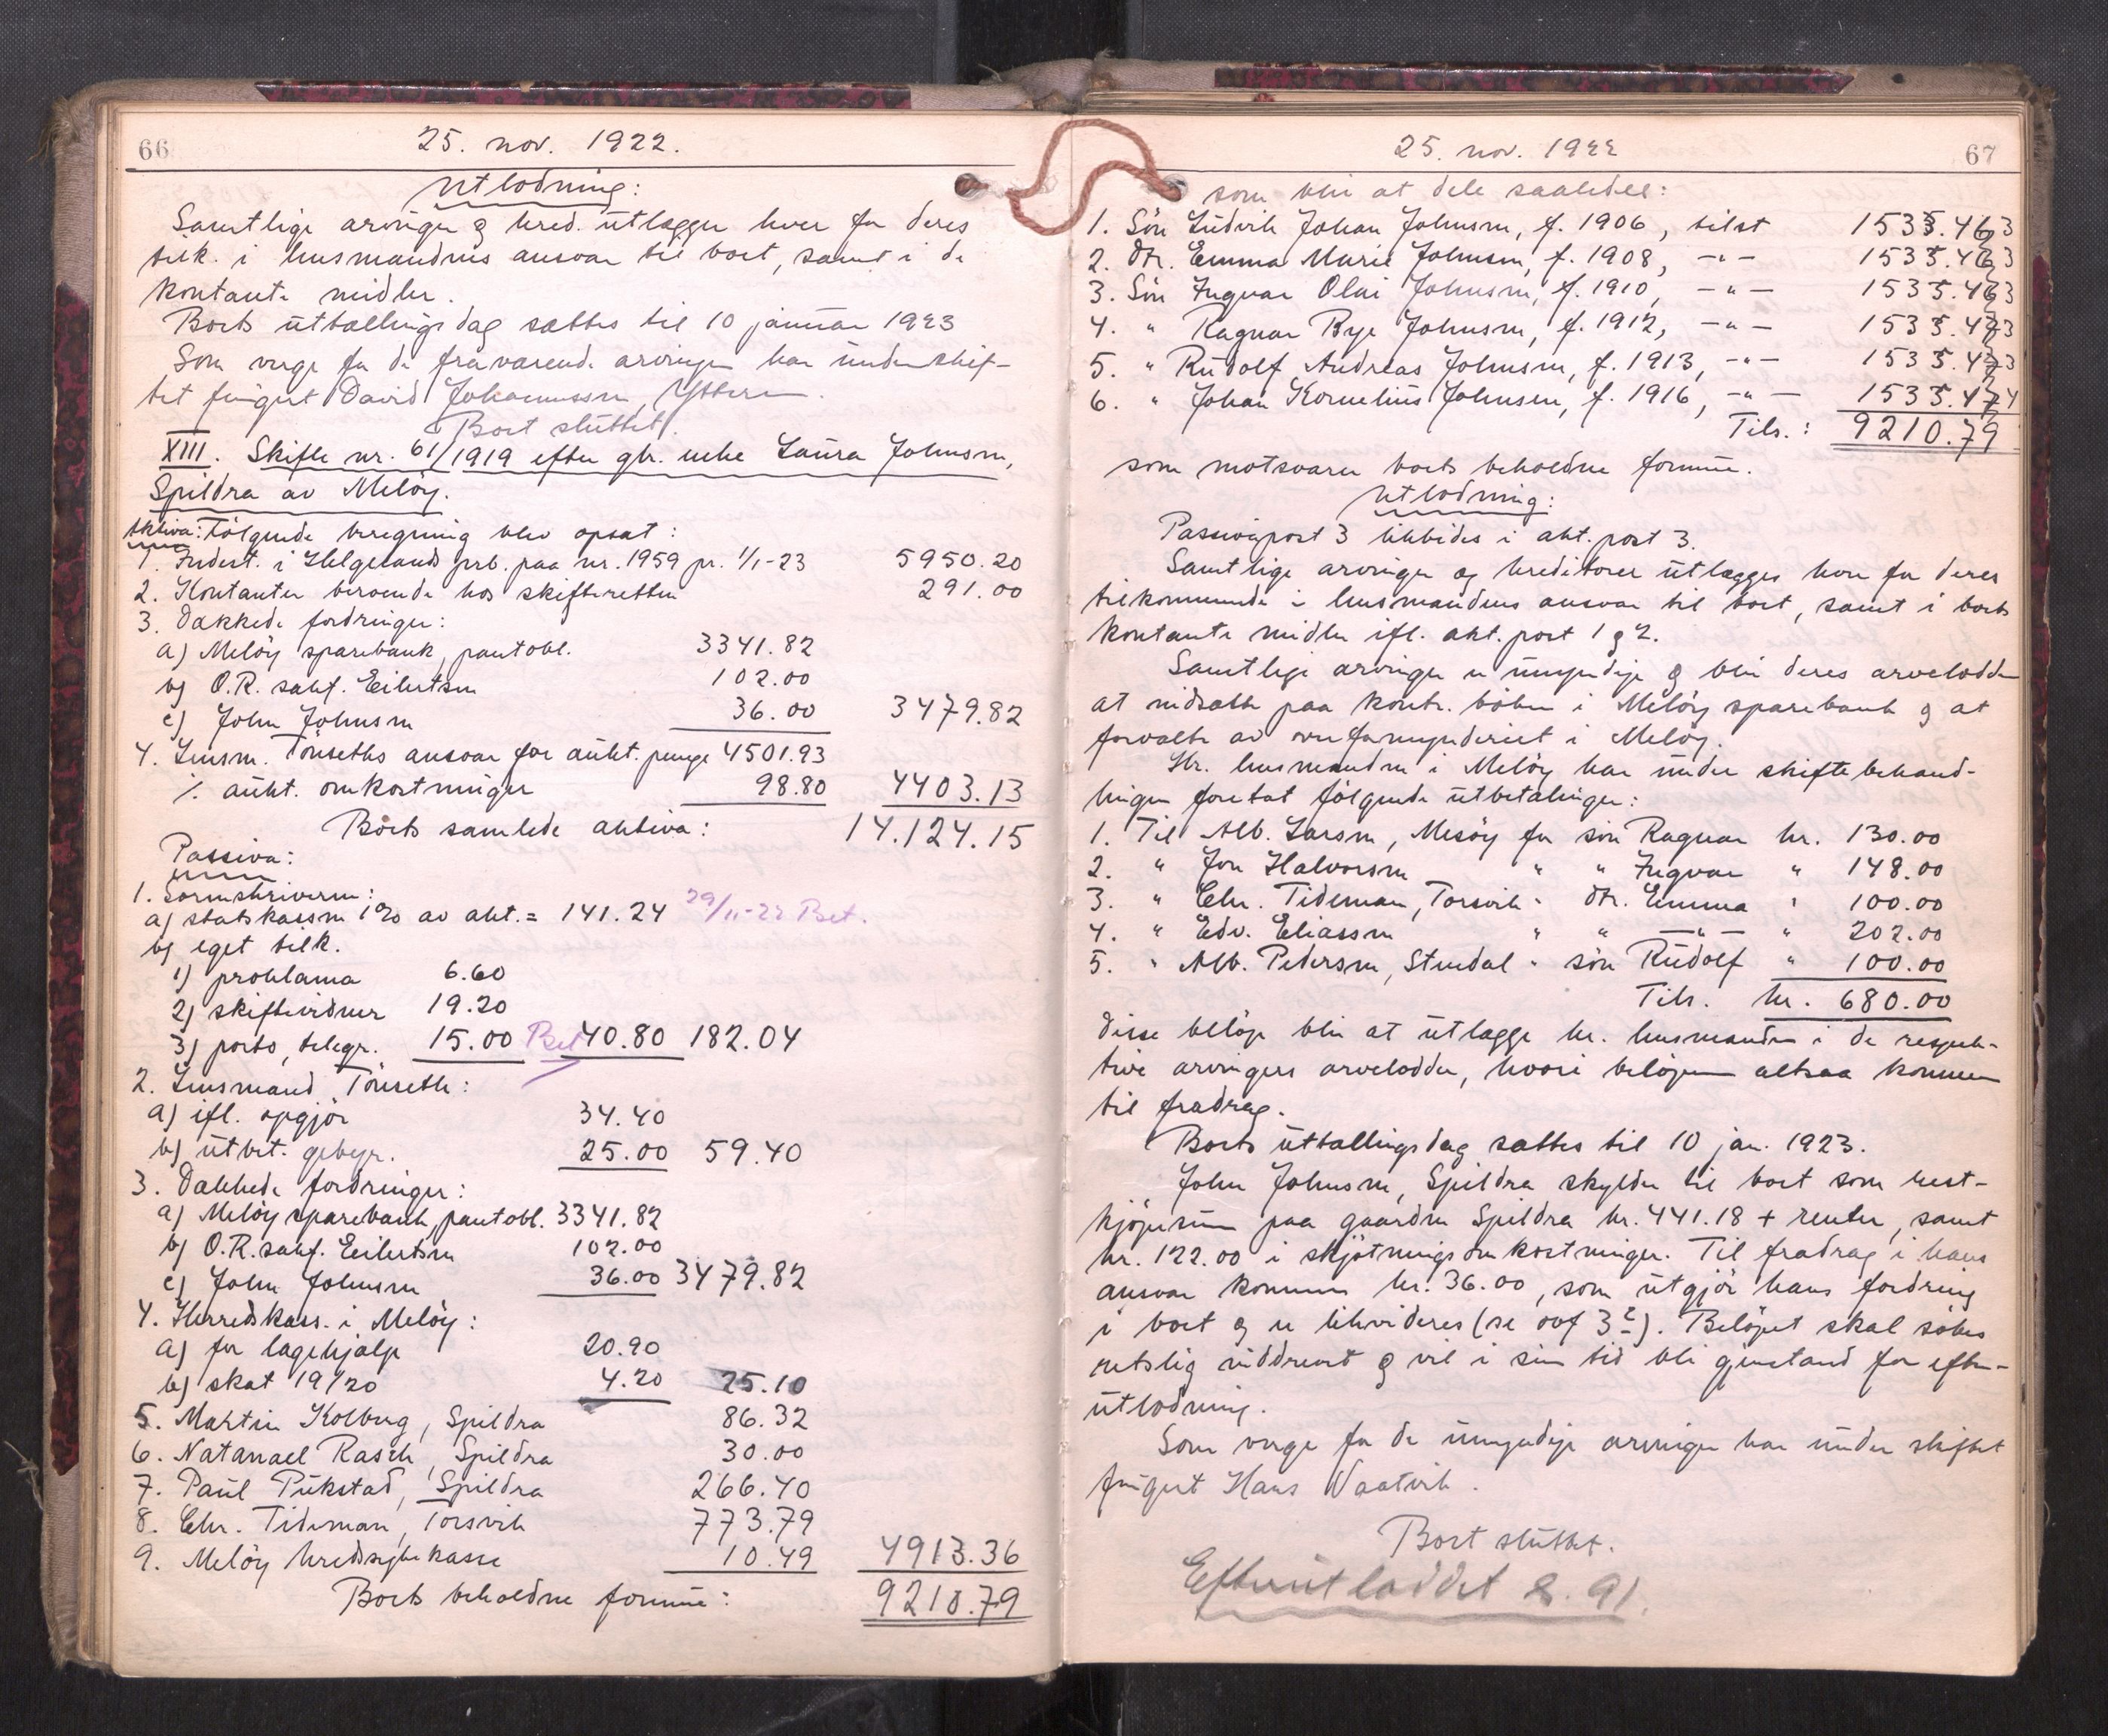 66
25. nov. 1922.
Utlodning:
Samtlige arvinger & kred. utlægges hver for deres
tilk. i lensmandens ansvar til boet, samt i de
kontante midler.
Boets utbetalingsdag sættes til 10 januar 1923
Som verge for de fraværende arvinger har under skif-
tet fungert David Johannessen, Ytteren.
Boet sluttet.
XIII. Skifte nr. 61/1919 efter gbr. enke Laura Johnsen,
Spildra av Meløy.
Aktiva: Følgende beregning blev opsat:
1. Indest. i Helgelands prb. paa nr. 1959 pr. 1/1-23 5950.20
2. Kontanter beroende hos skifteretten 291.00
3. Dækkede fordringer:
a) Meløy sparebank, pantobl. 3341.82
b) O.R. sakf. Eilertsen 102.00
c) John Johnsen 36.00 3479.82
4. Lensm. Tønseths ansvar for aukt. penge 4501.93
% aukt. omkostninger 98.80 4403.13
Boets samlede aktiva: 14.124.15
Passiva:
1. Sorenskriveren:
a) statskassen 1% av akt. = 141.24 29/11-22 Bet.
b) eget tilk.
1) proklama 6.60
2) skiftevidner 19.20
3) porto, telegr. 15.00 Bet 40.80 182.04
2. Lensmand Tønseth:
a) ifl. opgjør 34.40
b) utbet. gebyr. 25.00 59.40
3. Dækkede fordringer:
a) Meløy sparebank, pantobl. 3341.82
b) O.R. sakf. Eilertsen 102.00
c) John Johnsen 36.00 3479.82
4. Herredskass. i Meløy:
a) for lægehjælp 20.90
b) skat 19/20 4.20 25.10
5. Martin Kolberg, Spildra 86.32
6. Natanael Rasch, Spildra 30.00
7. Paul Pukstad, Spildra 266.40
8. Chr. Tideman, Torsvik 773.79
9. Meløy kredssykekasse 10.49 4913.36
Boets beholdne formue: 9210.79
25. nov. 1922
67
som blir at dele saaledes:
1. Søn Ludvik Johan Johnsen, f. 1906, tilst 1535.13
2. Dtr. Emma Marie Johnsen, f. 1908, -"- 1535.13
3. Søn Ingvar Olai Johnsen, f. 1910, -"- 1535.13
4. " Ragnar Bye Johnsen, f. 1912, -"- 1535.13
5. " Rudolf Andreas Johnsen, f. 1913, -"- 1535.13
6. " Johan Kornelius Johnsen, f. 1916, -"- 1535.14
Tils.: 9210.79
som motsvarer boets beholdne formue.
Utlodning:
Passivapost 3 likvides i akt. post 3.
Samtlige arvinger og kreditorer utlægges hver for deres
tilkommende i lensmandens ansvar til boet, samt i boets
kontante midler ifl. akt. post 1 & 2.
Samtlige arvinger er umyndige & blir deres arvelodder
at nidsætte paa kontr. bøker i Meløy sparebank & at
forvalte av overformynderiet i Meløy.
Hr. lensmanden i Meløy har under skiftebehand-
lingen foretat følgende utbetalinger:
1. Til Alb. Larsen, Mesøy for søn Ragnar kr. 130.00
2. " Jon Halvorsen " " Ingvar " 148.00
3. " Chr. Tideman, Torsvik " dtr. Emma " 100.00
4. " Edv. Eliassen " " -"- " 202.00
5. " Alb. Pedersen, Stendal " søn Rudolf " 100.00
Tils. kr. 680.00
Disse beløp blir at utlægge hr. lensmanden i de respek-
tive arvingers arvelodder, hvori beløpene altsaa kommer
til fradrag.
Boets utbetalingsdag sættes til 10 jan. 1923.
John Johnsen, Spildra skylder til boet som rest-
kjøpesum paa gaarden Spildra kr. 441.18 + renter, samt
kr. 122.00 i skjøtningsomkostninger. Til fradrag i hans
ansvar kommer kr. 36.00, som utgjør hans fordring
i boet & er likvideres (se ovf 3c). Beløpet skal søkes
retslig inddrevet & vil i sin tid bli gjenstand for efter-
utlodning.
Som verge for de umyndige arvinger har under skiftet
fungert Hans Vaatvik.
Boet sluttet.
Efterutloddet s. 91.